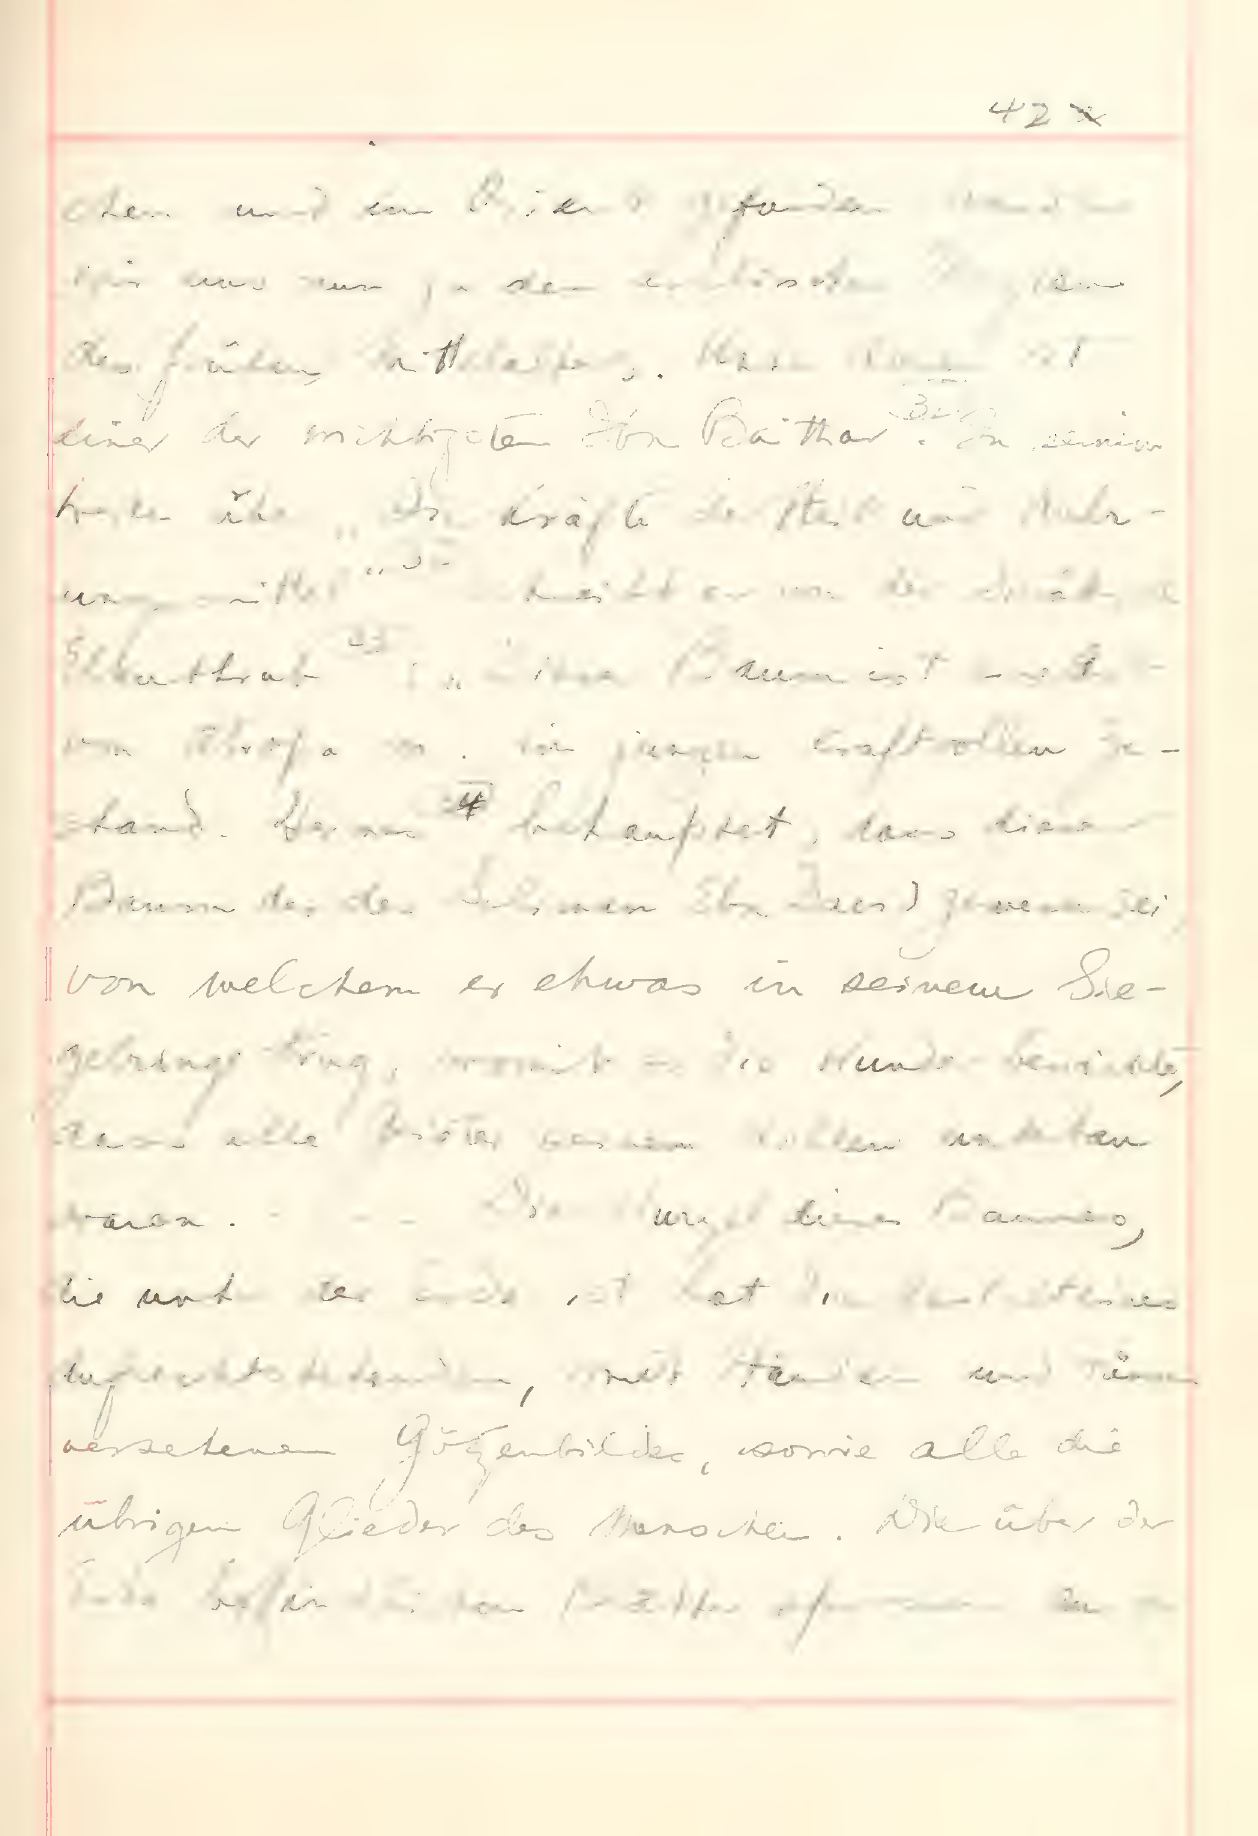 42
chen und im Orient gefunden wenden
wir uns nun zu den arabischen
des frühen Mittelalters. Unter ihnen ist
einer der wichtigsten Ibn Baithar. In seinem
Werke über „Die Kräfte der Heil und Nahr-
ungsmittel" er von der
: „Dieser Baum ist
von im jungen kraftvollen Zu-
stand. Hermes 4 behauptet, dass dieser
Baum der des Soliman Ebn Daud gewesen sei,
von welchem er etwas in seinem Sie-
gelringe trug, womit er die Wunder bewirkte,
dass alle Geister seinem Willen untertan
waren. - - - Die Wurzel dieses Baumes,
die unter der Erde ist hat die Gestalt eines
aufrechtstehenden, mit Händen und Füssen
versehenen Götzenbildes, sowie alle die
übrigen Glieder des Menschen. Die über der
Erde befindlichen Blätter